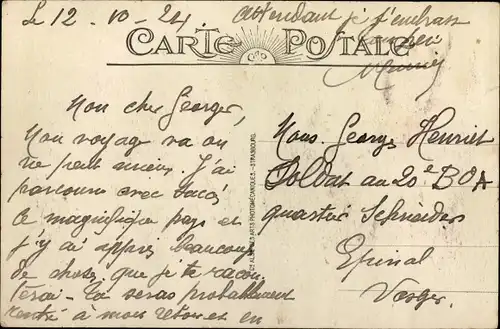 Le 12-10-24
attendant je t'embrasse
CARTE POSTALE
Mon cher Georges,
Mon voyage va on
ne peut mieux. J'ai
parcouru avec
ce magnifique pays et
j'y ai appris beaucoup
de choses que je te racon
terai - tu seras probablement
rentré à mon retour et en
ALSACIENNE ARTS PHOTOMÉCANIQUES - STRASBOURG
Mons. Georges Henriet
Soldat au 20e BOA
quartier Schneider
Epinal
Vosges